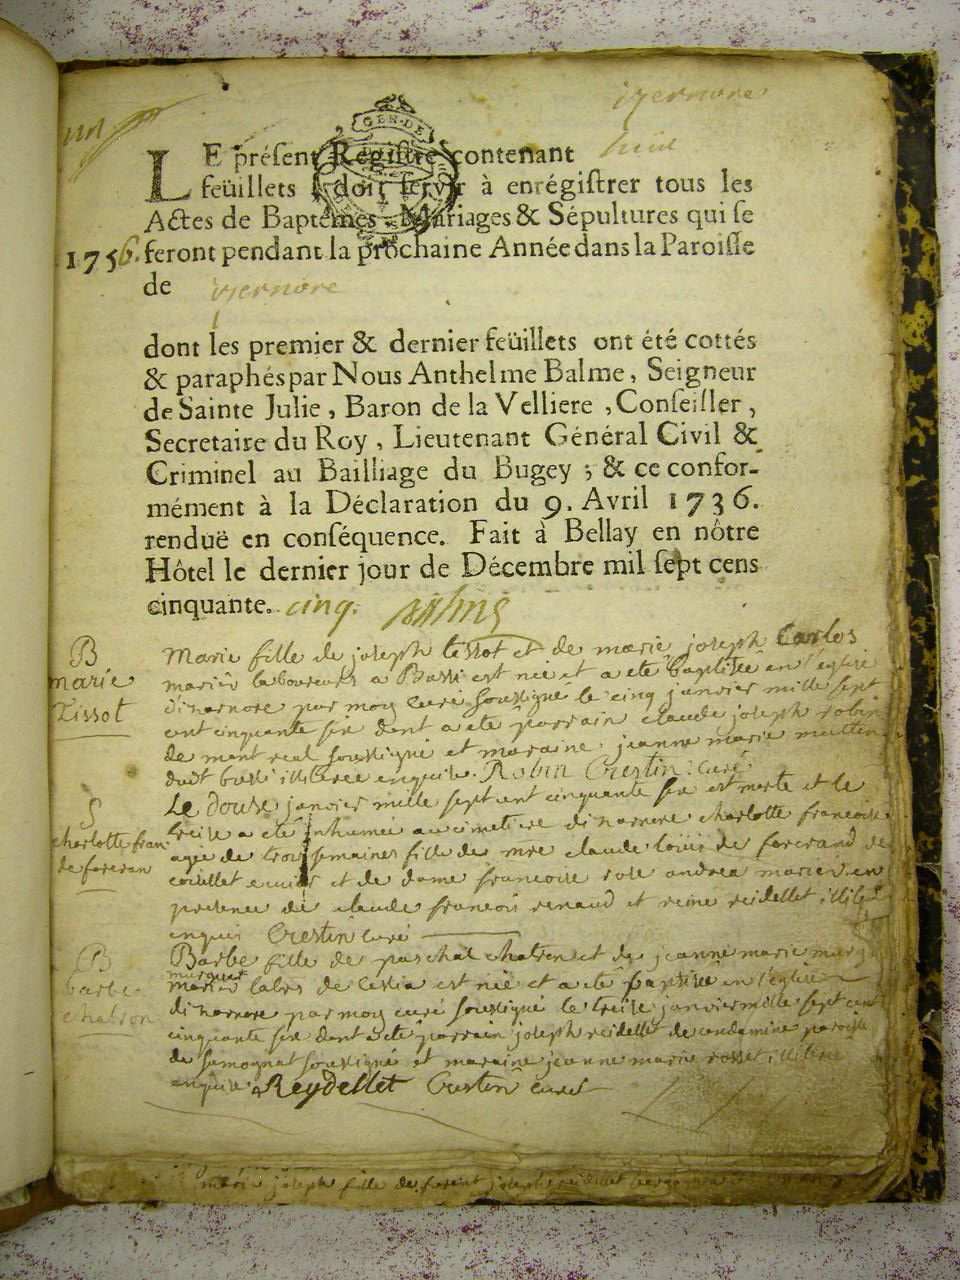 izernore
un
GEN. DE
LE préſent Regiſtre contenant huit
feüillets doit ſervir à enrégiſtrer tous les
Actes de Baptêmes, Mariages & Sépultures qui ſe
1756. feront pendant la prochaine Année dans la Paroiſſe
de izernore
dont les premier & dernier feüillets ont été cottés
& paraphés par Nous Anthelme Balme, Seigneur
de Sainte Julie, Baron de la Velliere, Conſeiller,
Secretaire du Roy, Lieutenant Général Civil &
Criminel au Bailliage du Bugey; & ce confor-
mément à la Déclaration du 9. Avril 1736.
renduë en conſéquence. Fait à Bellay en nôtre
Hôtel le dernier jour de Décembre mil ſept cens
cinquante. cinq.
B.
marie
Tissot
Marie fille de joseph tissot et de marie joseph Carlos
mariés laboureurs a Bussi est née et a eté baptisée en l'eglise
dinarnore par moy curé soussigné le cinq janvier mille sept
cent cinquante six dont a eté parrain claude joseph robin
de mont real soussigné et maraine jeanne marie
enquise. Robin Crestin curé
S
charlotte fran
de forcran
Le douse janvier mille sept cent cinquante six est morte et le
treise a eté inhumée au cimetiere dinarnore charlotte francoise
agée de trois semaines fille de mre claude loüis de forcrand de
coirellet ecuier et de dame francoise rose andrea mariés en
presence de claude francois renaud et reine reidellet
enquis Crestin curé
B
barbe
chatron
Barbe fille de paschal chatron et de jeanne marie
murquet
mariés de Cessia est née et a eté baptisée en l'eglise
dinarnore par moy curé soussigné le treise janvier mille sept cent
cinquante six dont a eté parrain joseph reidellet de condamine paroisse
de samognat soussigné et maraine jeanne marie rosset illiterée
enquise Reydellet Crestin curé
marie joseph fille de joseph reidellet